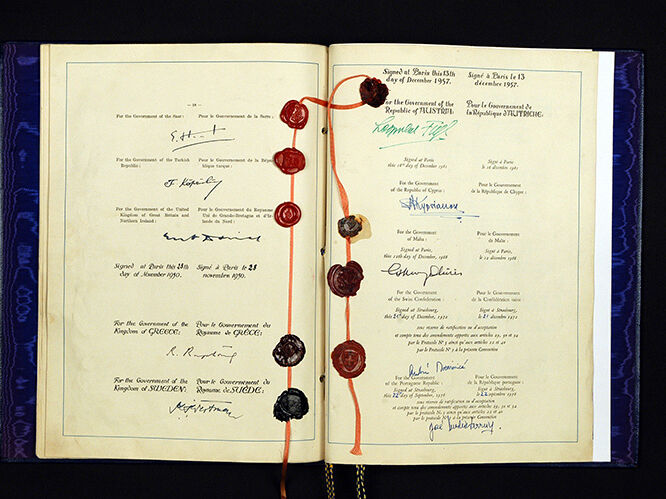 — 18 —
For the Government of the Saar : Pour le Gouvernement de la Sarre :
For the Government of the Turkish Pour le Gouvernement de la Répu-
Republic : blique turque :
For the Government of the United Pour le Gouvernement du Royaume
Kingdom of Great Britain and Uni de Grande-Bretagne et d'Ir-
Northern Ireland : lande du Nord :
Signed at Paris this 28th Signé à Paris le 28
day of November 1950. novembre 1950.
For the Government of the Pour le Gouvernement du
Kingdom of GREECE: Royaume de GRÈCE:
For the Government of the Pour le Gouvernement du
Kingdom of SWEDEN: Royaume de SUÈDE:
Signed at Paris this 13th Signé à Paris le 13
day of December 1957. décembre 1957.
For the Government of the Pour le Gouvernement de
Republic of AUSTRIA: la République d'AUTRICHE:
Leopold Figl
Signed at Paris Signé à Paris
this 16th day of December 1961 le 16 décembre 1961
For the Government Pour le Gouvernement
of the Republic of Cyprus : de la République de Chypre :
For the Government of Pour le Gouvernement de
Malta : Malte :
Signed at Paris, Signé à Paris,
this 12th day of December, 1966 le 12 décembre 1966
For the Government of Pour le Gouvernement de
the Swiss Confederation : la Confédération suisse
Signed at Strasbourg, Signé à Strasbourg,
this 21st day of December, 1972 le 21 décembre 1972
sous réserve de ratification ou d'acceptation
et compte tenu des amendements apportés aux articles 29, 30 et 94
par le Protocole N° 3 ainsi qu'aux articles 22 et 40
par le Protocole N° 5 à la présente Convention
For the Government of Pour le Gouvernement de
the Portuguese Republic : la République portugaise :
Signed at Strasbourg, Signé à Strasbourg,
this 22d day of September, 1976 le 22 septembre 1976
sous réserve de ratification et d'acceptation
et compte tenu des amendements apportés aux articles
par le Protocole N° 3 ainsi qu'aux articles 22 et 40
par le Protocole N° 5 à la présente Convention